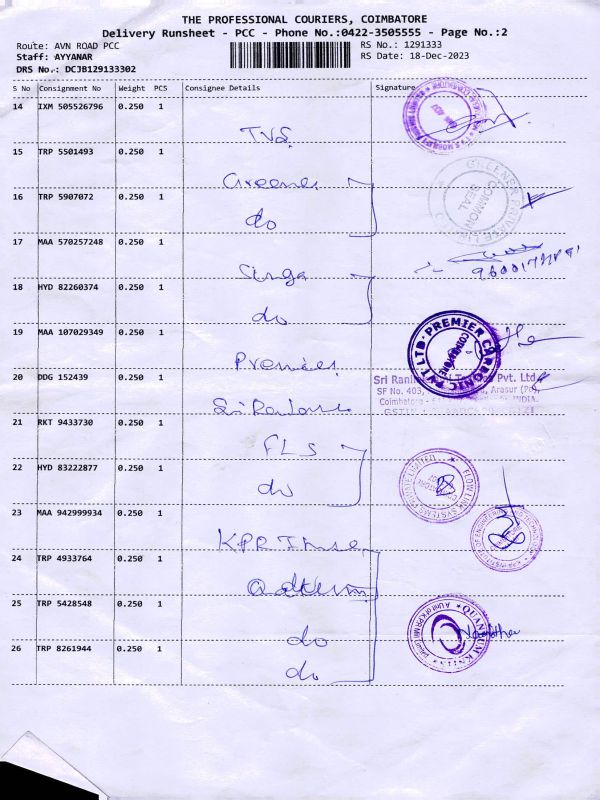 THE PROFESSIONAL COURIERS, COIMBATORE
Delivery Runsheet - PCC - Phone No.:0422-3505555 - Page No.:2
Route: AVN ROAD PCC
RS No.: 1291333
Staff: AYYANAR
RS Date: 18-Dec-2023
DRS No.: DCJB129133302
S No Consignment No Weight PCS Consignee Details Signature
14 IXM 505526796 0.250 1
TVS
15 TRP 5501493 0.250 1
Greenes
16 TRP 5907072 0.250 1
do
GREENSR PRIVATE
COMMON SEAL
17 MAA 570257248 0.250 1
18 HYD 82260374 0.250 1
do
19 MAA 107029349 0.250 1
Premier
PREMIER CARBONIC PVT LTD
20 DDG 152439 0.250 1
Sri Pvt. Ltd.
SF No. 403, Arasur (Po),
Coimbatore - INDIA.
21 RKT 9433730 0.250 1
FLS
22 HYD 83222877 0.250 1
do
FLOW LINK SYSTEMS PRIVATE LIMITED
23 MAA 942999934 0.250 1
KPR
24 TRP 4933764 0.250 1
25 TRP 5428548 0.250 1
do
QUANTUM KNITS
26 TRP 8261944 0.250 1
do